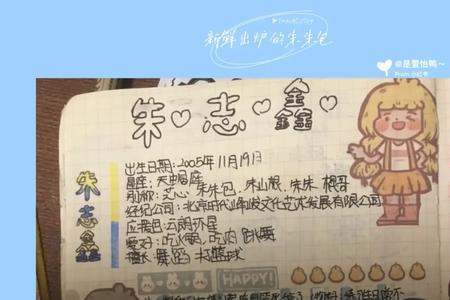 新鲜出炉的朱朱包
@是萱怡鸭~
朱志鑫
朱志鑫
出生日期:2005年11月19日
星座:天蝎座
别称:芝心 朱朱包 朱山根 朱朱 根哥
经纪公司:北京时代峰峻文化艺术发展有限公司
应援色:云朗环星
爱好:吃火锅,吃肉 跳舞
擅长:舞蹈 打篮球
HAPPY!